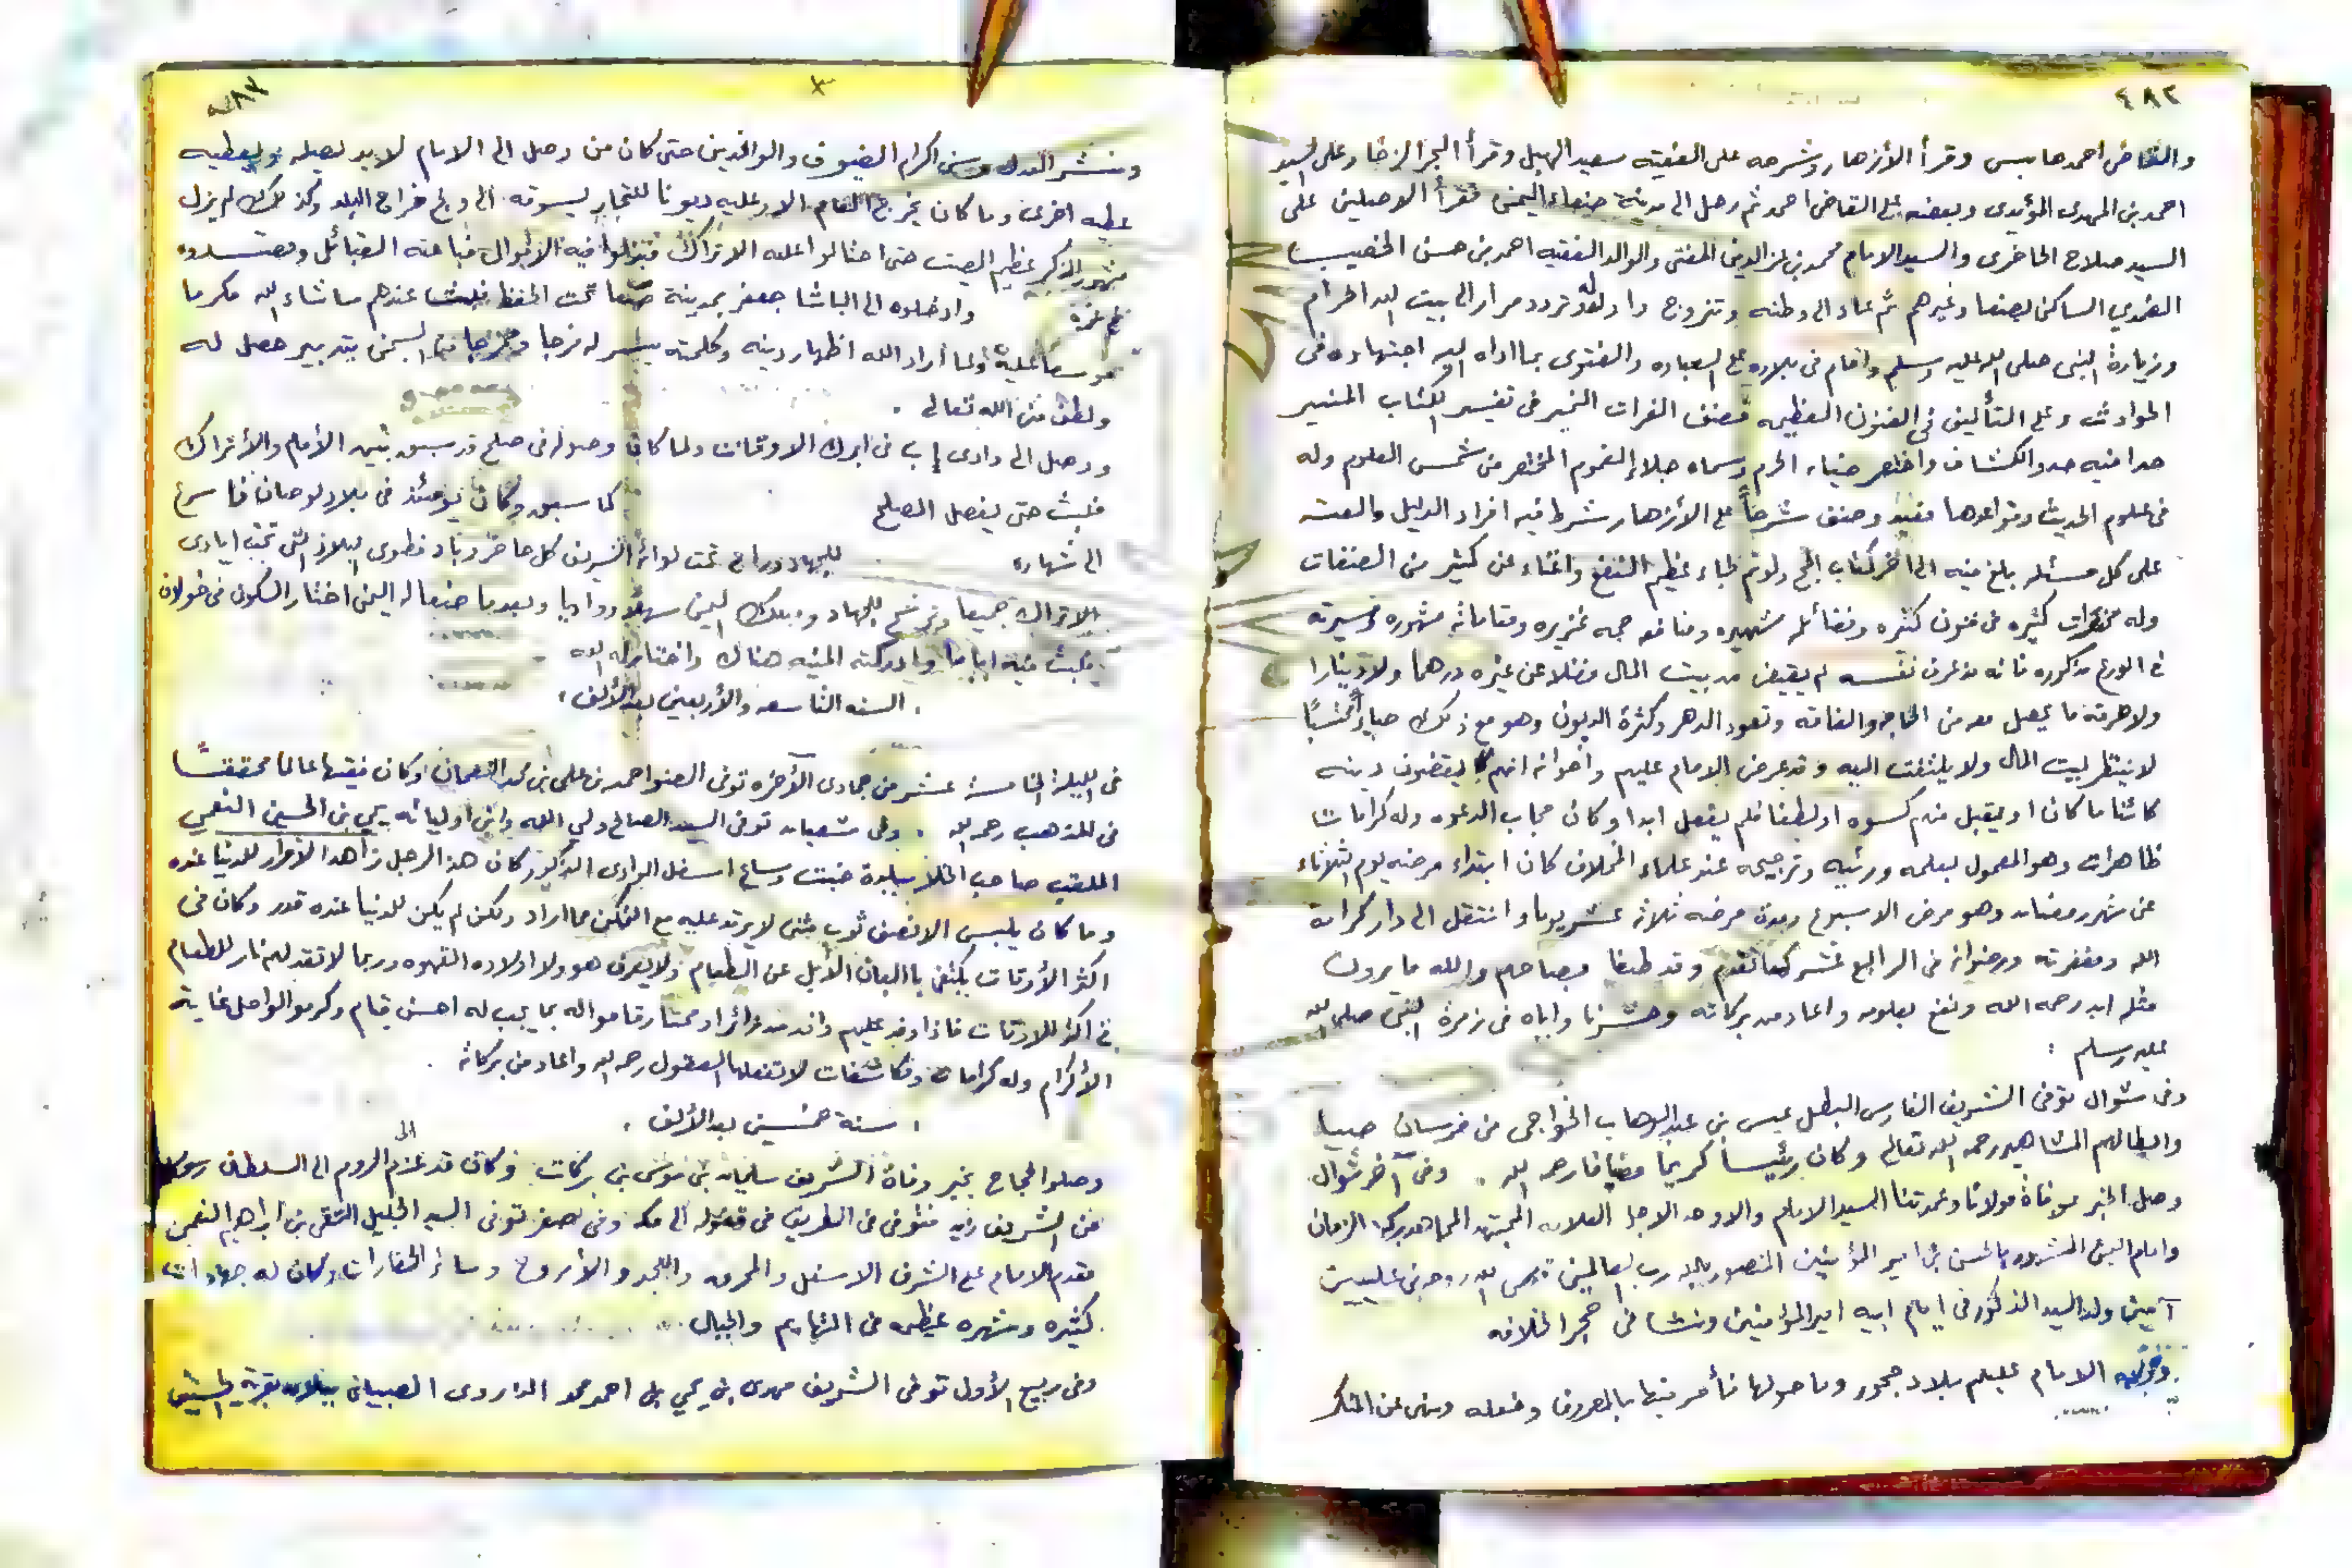 ٤٨٢
والقاضي احمد حابس وقرأ الأزهار وشرحه على الفقيه سعيد الهبل وقرأ البحر الزخار على السيد
احمد بن المهدى المؤيدى وبعضه على القاضي احمد ثم رحل الى مدينة صنعاء اليمن فقرأ الاصلين على
السيد صلاح الحاضرى والسيد الامام محمد بن عز الدين المفتى والوالد الفقيه احمد بن حسن
الضمدي الساكن بصنعا وغيرهم ثم عاد الى وطنه وتزوج وتردد مرارا الى بيت الله الحرام
وزيارة النبى صلى الله عليه وسلم واقام فى بلاده على العباده والفتوى بما اداه اليه اجتهاده فى
الحوادث وعلى التأليف فى الفنون العظيمه فصنف الفرات النمير فى تفسير الكتاب المنير
حدا فيه حدو الكشاف واختصر ضياء الحرم وسماه جلاء الغموم المختصر من شمس العلوم وله
فى علوم الحديث وقواعدها مفيد وصنف شرحاً على الأزهار شرط فيه افراد الدليل
على كل مسئله بلغ فيه الى اخر كتاب الحج ولو تم لجاء عظيم النفع واغناء عن كثير من المصنفات
وله مختصرات كثيره فى فنون كثيره وفضائله شهيره ومنافعه جمه غزيره ومقاماته مشهوره وسيرته
فى الورع مذكوره فانه مذ عرف نفسه لم يقبض من بيت المال فضلا عن غيره درهما ولا دينارا
ما يحصل معه من الحاجه والفاقه وكثرة الديون وهو مع ذلك
لا ينتظر لبيت المال ولا يلتفت اليه وقد عرض الامام عليهم واخوانه انهم يقضون دينه
كائنا ما كان او يقبل منهم كسوه فلم يفعل ابدا وكان مجاب الدعوه وله كرامات
ظاهرات وهو المعمول بعلمه ورئيه وترجيحه عند علماء المخلاف كان ابتداء مرضه يوم الثلاثاء
من شهر رمضان وهو مرض الاسبوع ومدة مرضه ثلاثة عشر يوما وانتقل الى دار كرامة
الله ومغفرته ورضوانه فى الرابع عشر كما تقدم وقد والله ما يرون
مثله ابد رحمه الله ونفع بعلومه واعاد من بركاته وحشرنا واياه فى زمرة النبى صلى الله
عليه وسلم :
وفى شوال توفى الشريف الفارس البطل عيسى بن عبد الوهاب الخواجى من فرسان صبيا
وابطالهم المشاهير رحمه الله تعالى وكان رئيساً كريما مضيافا رحمه الله . وفى آخر شوال
وصل الخبر بوفاة مولانا وعمدتنا السيد الامام والاوحد الاجل العلامه المجتهد المجاهد بركة الزمان
وامام اليمن المشهور بالحسن بن امير المؤمنين المنصور بالله رب العالمين قدس الله روحه فى عليين
آمين ولد السيد المذكور فى ايام ابيه امير المؤمنين ونشا فى حجر الخلافه
الامام عليهم بلاد حجور وما حولها فأمر فيها بالمعروف وفعله ونهى عن المنكر
٤٨٣
ونشر العدل اكرام الضيوف والوافدين حتى كان من وصل الى الامام لابد يصله ويعطيه
عطيه اخرى وما كان يخرج العام الا وعليه ديونا للتجار وكذلك لم يزل
مشهور الذكر عظيم الصيت حتى احتالوا عليه الاتراك فبذلوا فيه الاموال فباعته القبائل
وادخلوه الى الباشا جعفر بمدينة صنعا تحت الحفظ فلبث عندهم ما شاء الله مكرما
موسعا عليه ولما أراد الله اظهار دينه وكلمته يسر له فرجا ومخرجا من السجن بتدبير حصل له
ولطف من الله تعالى .
ووصل الى وادى إب فى ابرك الاوقات ولما كان وصوله فى صلح قد سبق بين الأمام والأتراك
فلبث حتى يفصل الصلح كما سبق وكان يومئذ فى بلاد
الى شهاره للجهاد تحت لوائه الشريف كل حاضر وباد فطوى البلاد التى تحت ايادى
الاتراك جميعا للجهاد وملك اليمن سهلا وواديا وبعدما صنعا له اليمن اختار السكون فى خولان
فلبث فيه اياما وادركته المنيه هناك واختار له الله
. السنه التاسعه والأربعين بعد الألف .
فى الليلة الخامسة عشر من جمادى الآخره توفى الصنو احمد بن على بن محمد النعمان وكان فقيها عالما محققا
فى المذهب رحمه الله . وفى شعبان توفى السيد الصالح ولى الله وابن اوليائه يحي بن الحسين النعمي
الملقب صاحب الخلا اسفل الوادى المذكور كان هذا الرجل زاهدا
وما كان يلبس الا نصف ثوب عليه مع التمكن مما اراد ولكن لم يكن للدنيا عنده قدر وكان فى
اكثر الأوقات يكتفى بالبان الأبل عن الطعام ولا يعرف هو ولا اولاده القهوه وربما لا تقد لهم نار للطعام
فى اكثر الاوقات فاذا وفد عليهم وافد من زائر او ممتار قاموا له بما يجب له احسن قيام وكرموا الواصل غاية
الأكرام وله كرامات ومكاشفات لا تفعلها العقول رحمه الله واعاد من بركاته .
. سنة خمسين بعد الألف .
وصلوا الحجاج بخبر وفاة الشريف سليمان بن موسى بن بركات وكان قد عزم الى الروم الى السلطان رسولا
من الشريف زيد فتوفى فى الطريق فى قفوله الى مكه وفى صفر توفى السيد الجليل التقى بن ابراهيم النعمى
مقدم الامام على الشرف الاسفل والمحرق وكان له جهادات
كثيره وشهره عظيمه فى التهايم والجبال .
وفى ربيع الأول توفى الشريف مهدى بن يحي بن احمد محمد الداروى الصبيانى بقرية